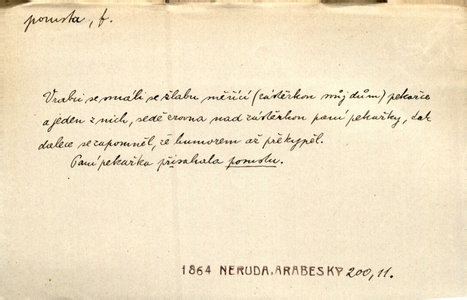 pomsta, f.
Vrabci se smáli se žlabu měřící (zástěrkou můj dům) pekařce
a jeden z nich, sedě zrovna nad zástěrkou paní pekařky, tak
dalece se zapomněl, že humorem až překypěl.
Paní pekařka přísahala pomstu.
1864 NERUDA, ARABESKY 200, 11.